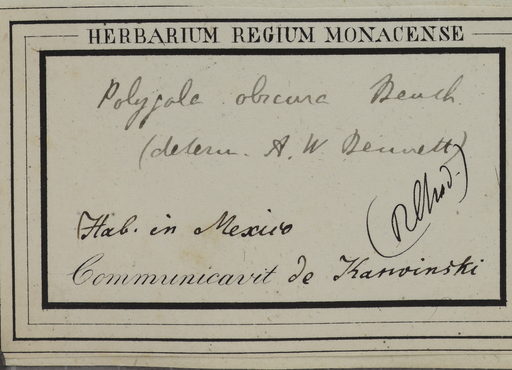 HERBARIUM REGIUM MONACENSE
Polygala obscura Benth.
(determ. A. W. Bennett)
Hab. in Mexico
Communicavit de Karwinski